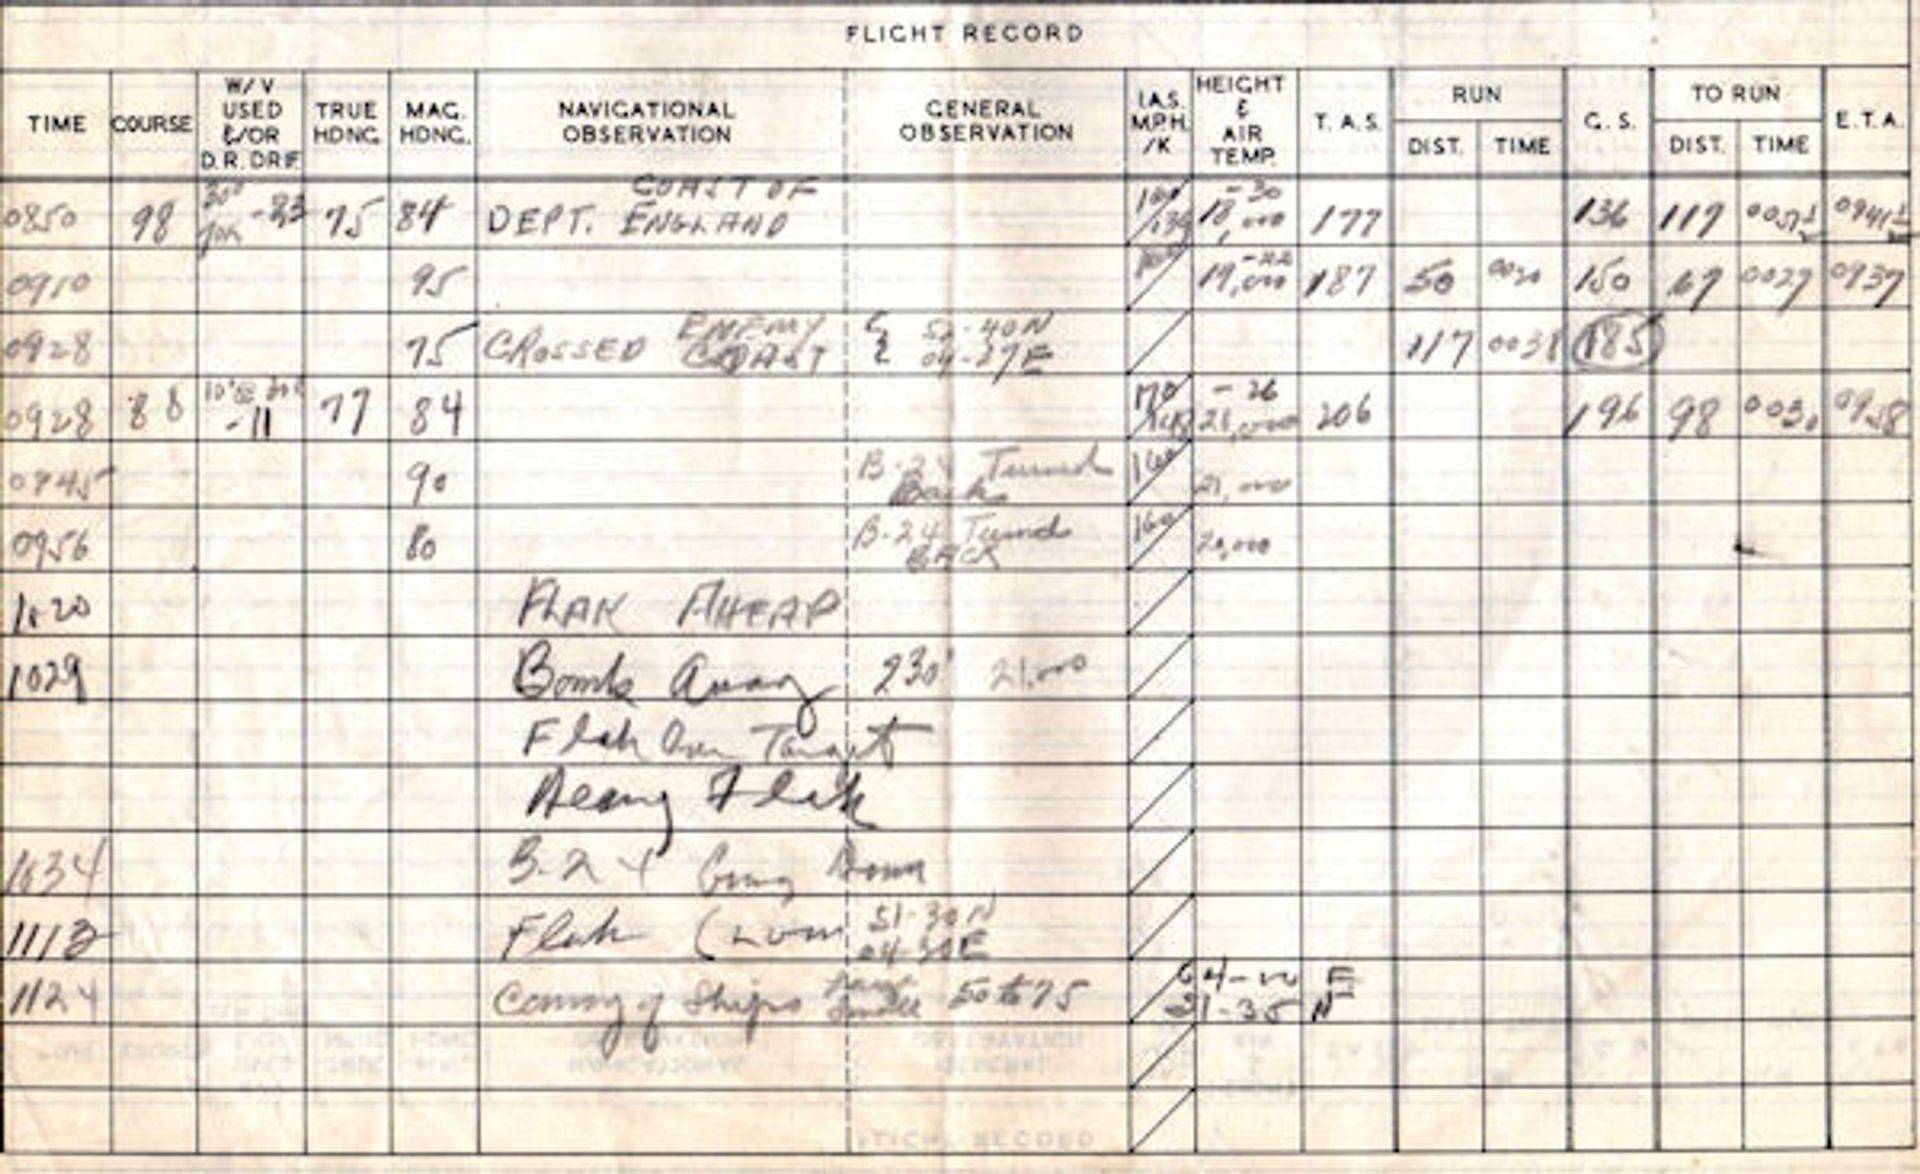 FLIGHT RECORD
TIME COURSE W/V USED &/OR D.R. DRIF. TRUE HDNG. MAG. HDNG. NAVIGATIONAL OBSERVATION GENERAL OBSERVATION I.A.S. M.P.H. /K HEIGHT & AIR TEMP. T.A.S. RUN DIST. TIME G.S. TO RUN DIST. TIME E.T.A.
0850 98 75 84 DEPT. COAST OF ENGLAND -30 18,000 177 136 117 0051½ 0941½
0910 95 -22 19,000 187 50 0020 150 67 0027 0937
0928 75 CROSSED ENEMY COAST 52-40N 117 0038 185
0928 88 -11 77 84 170 -26 21,000 206 196 98 0030 0958
0945 90 B-24 Turned Back 160 21,000
0956 80 B-24 Turned BACK 160 20,000
1020 FLAK AHEAD
1029 Bombs Away 230° 21,000
Flak Over Target
Heavy Flak
1034 B-24 Going Down
Flak 51-30N 04-30E
1124 Convoy of Ships Small 50 to 75 04-00 E 51-35 N